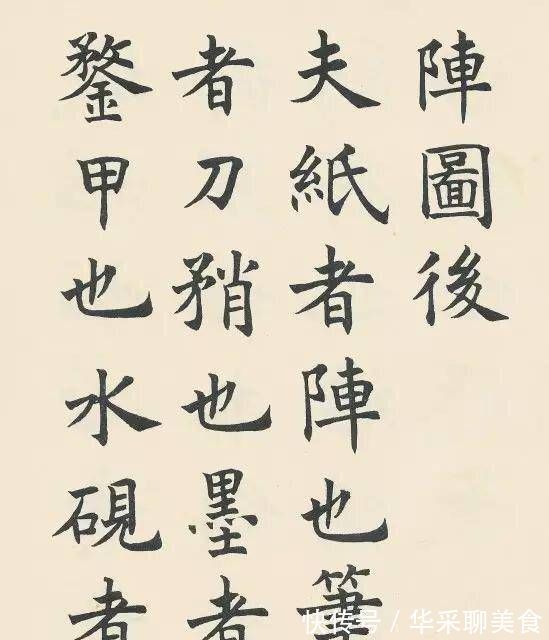 陣圖後
夫紙者陣也筆
者刀矟也墨者
鍪甲也水硯者
快传号 / 华采聊美食